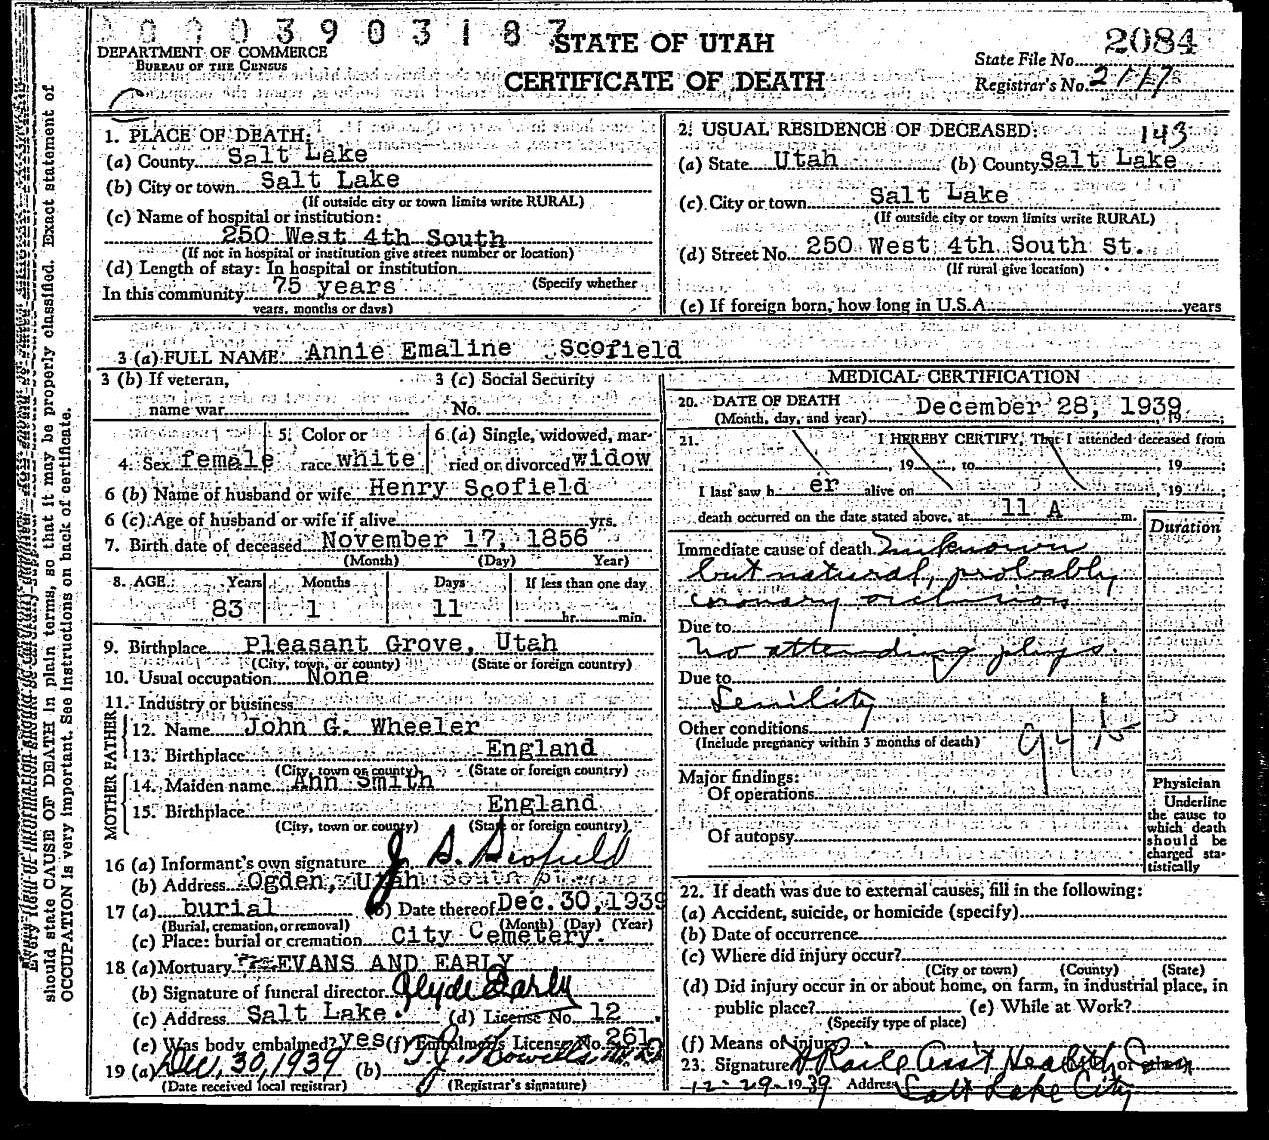 0003903187
DEPARTMENT OF COMMERCE
BUREAU OF THE CENSUS
STATE OF UTAH
CERTIFICATE OF DEATH
2084
State File No.
Registrar's No. 2117
1. PLACE OF DEATH:
(a) County Salt Lake
(b) City or town Salt Lake
(If outside city or town limits write RURAL)
(c) Name of hospital or institution:
250 West 4th South
(If not in hospital or institution give street number or location)
(d) Length of stay: In hospital or institution
(Specify whether
In this community 75 years
years, months or days)
2. USUAL RESIDENCE OF DECEASED: 143
(a) State Utah (b) County Salt Lake
(c) City or town Salt Lake
(If outside city or town limits write RURAL)
(d) Street No. 250 West 4th South St.
(If rural give location)
(e) If foreign born, how long in U.S.A. years
3 (a) FULL NAME: Annie Emaline Scofield
3 (b) If veteran, name war
3 (c) Social Security No.
4. Sex female
5. Color or race white
6 (a) Single, widowed, married or divorced widow
6 (b) Name of husband or wife Henry Scofield
6 (c) Age of husband or wife if alive yrs.
7. Birth date of deceased November 17, 1856
(Month) (Day) Year)
8. AGE: Years Months Days If less than one day
83 1 11 hr. min.
9. Birthplace Pleasant Grove, Utah
(City, town, or county) (State or foreign country)
10. Usual occupation None
11. Industry or business
FATHER
12. Name John G. Wheeler
13. Birthplace England
(City, town or county) (State or foreign country)
MOTHER
14. Maiden name Ann Smith
15. Birthplace England
(City, town or county) (State or foreign country)
16 (a) Informant's own signature J. S. Scofield
(b) Address Ogden, Utah
17 (a) burial (b) Date thereof Dec. 30, 1939
(Burial, cremation, or removal) (Month) (Day) (Year)
(c) Place: burial or cremation City Cemetery.
18 (a) Mortuary EVANS AND EARLY
(b) Signature of funeral director Clyde Early
(c) Address Salt Lake. (d) License No. 12
(e) Was body embalmed? yes (f) Embalmer's License No. 261
19 (a) Dec, 30, 1939 (b) T. J. Howells, M.D.
(Date received local registrar) (Registrar's signature)
MEDICAL CERTIFICATION
20. DATE OF DEATH
(Month, day, and year) December 28, 1939, 19 ;
21. I HEREBY CERTIFY, That I attended deceased from
, 19 , to , 19 ;
I last saw h er alive on , 19 ;
death occurred on the date stated above, at 11 A m.
Duration
Immediate cause of death Unknown
but natural, probably
coronary occlusion
Due to
No attending phys.
Due to
Senility
Other conditions
(Include pregnancy within 3 months of death)
94b
Major findings:
Of operations
Of autopsy
Physician
Underline
the cause to
which death
should be
charged sta-
tistically
22. If death was due to external causes, fill in the following:
(a) Accident, suicide, or homicide (specify)
(b) Date of occurrence
(c) Where did injury occur?
(City or town) (County) (State)
(d) Did injury occur in or about home, on farm, in industrial place, in
public place? (e) While at Work?
(Specify type of place)
(f) Means of injury
23. Signature Asst Health Com
12-29-1939 Address Salt Lake City
should state CAUSE OF DEATH in plain terms, so that it may be properly classified. Exact statement of
OCCUPATION is very important. See instructions on back of certificate.